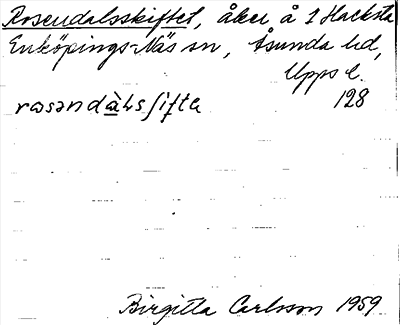 Rosendalsskiftet, åker å 1 Hacksta
Enköpings-Näs sn, Åsunda hd,
Upps l.
128
rosəndàlsſiftə
Birgitta Carlsson 1959